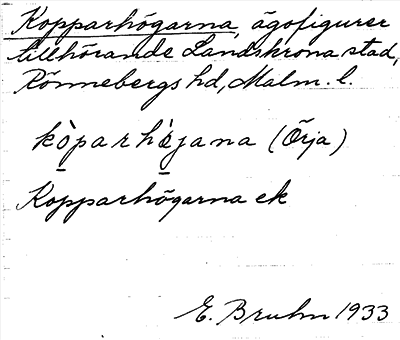 Kopparhögarna, ägofigurer
tillhörande Landskrona stad,
Rönnebergs hd, Malm. l.
kòparhö̀jana (Örja)
Kopparhögarna ek
E. Bruhn 1933